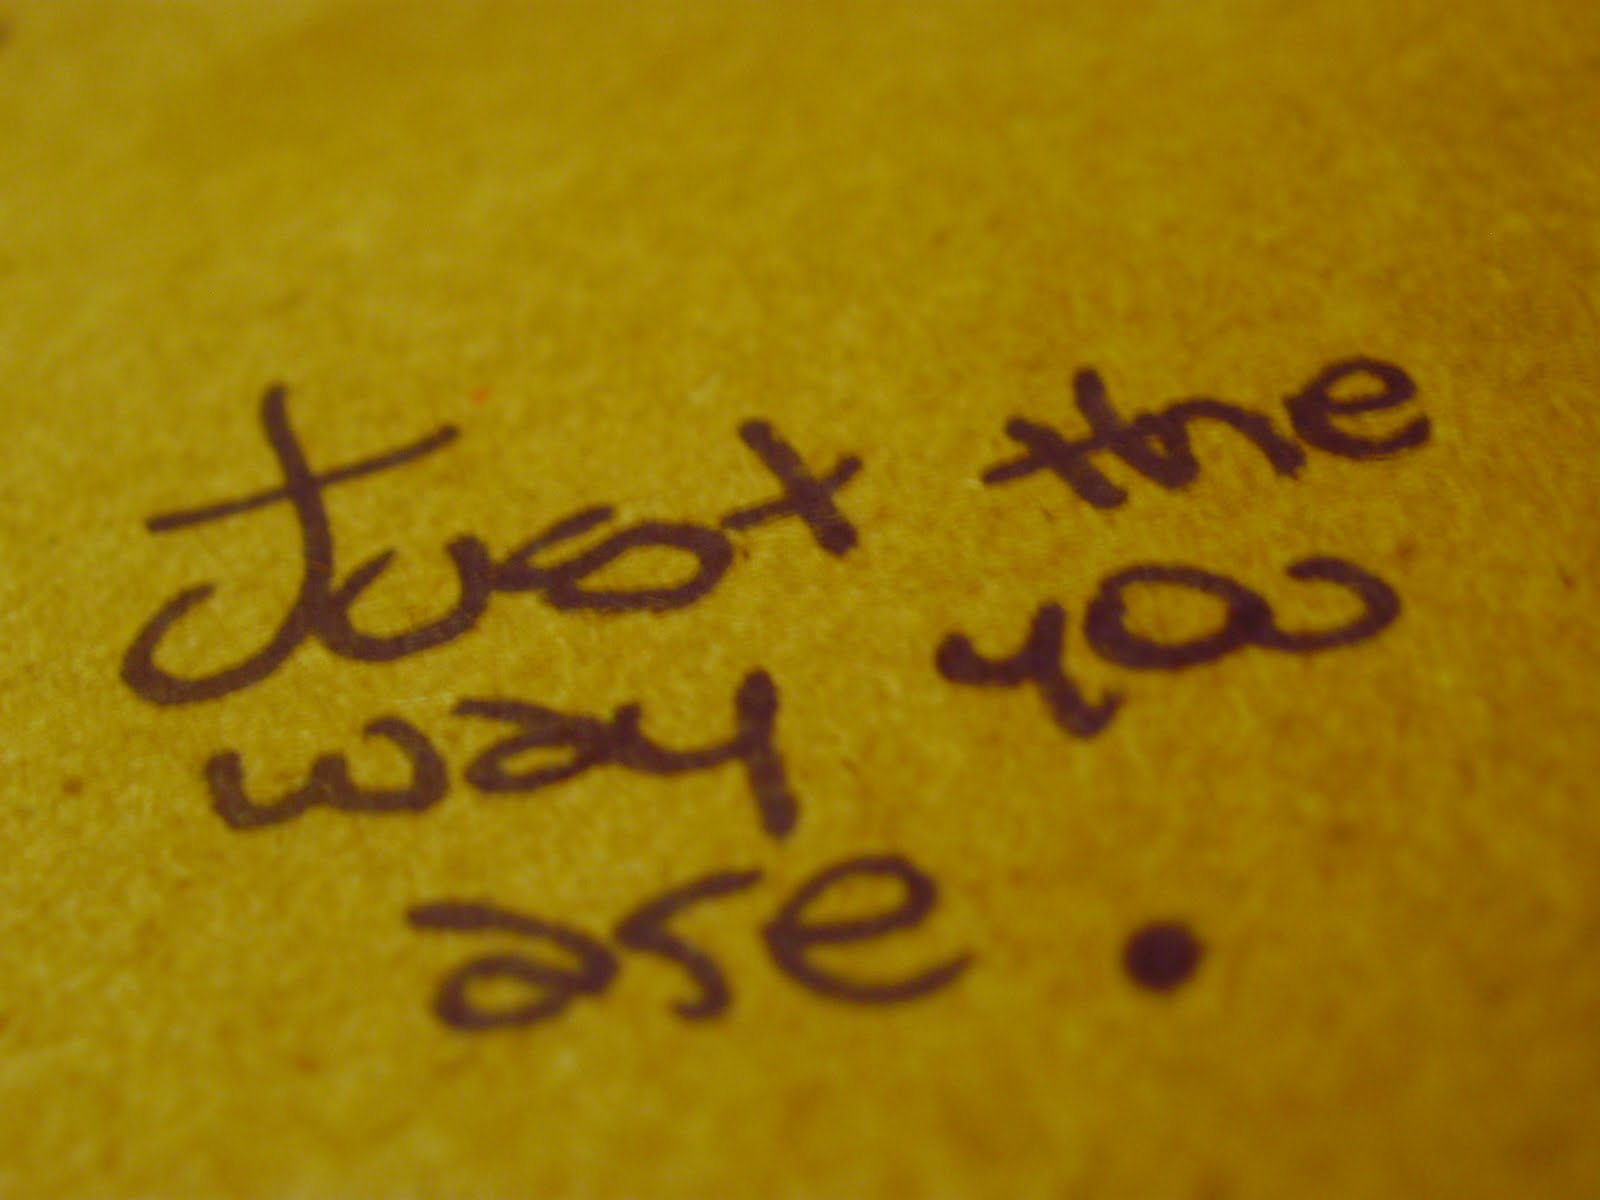 Just the
way you
are.